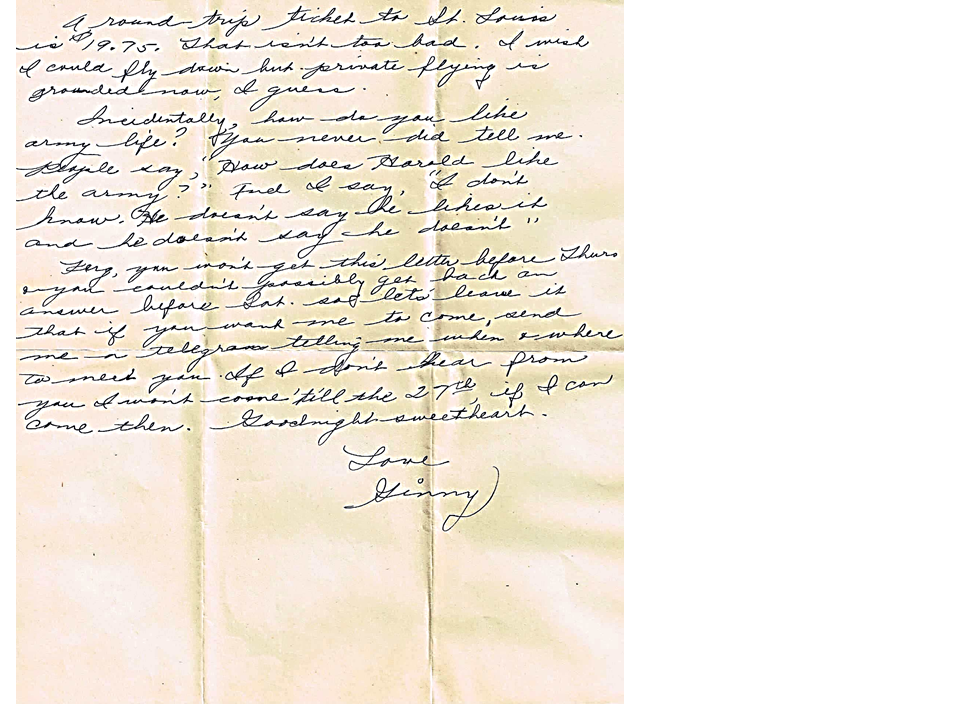 A round trip ticket to St. Louis
is $19.75. That isn't too bad. I wish
I could fly down but private flying is
grounded now, I guess.
Incidentally, how do you like
army life? You never did tell me.
People say, "How does Harold like
the army?" And I say, "I don't
know. He doesn't say he likes it
and he doesn't say he doesn't"
you won't get this letter before Thurs
& you couldn't possibly get back an
answer before Sat. so let's leave it
that if you want me to come, send
me a telegram telling me when & where
to meet you. If I don't hear from
you I won't come 'till the 27th, if I can
come then. Goodnight sweetheart.
Love
Ginny